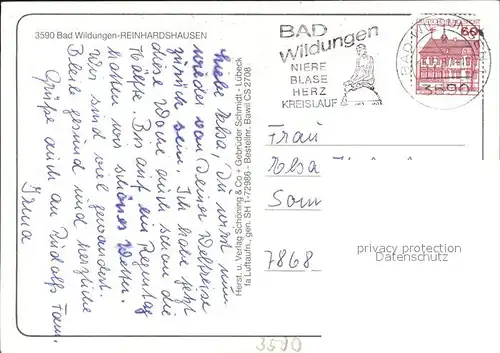 3590 Bad Wildungen-REINHARDSHAUSEN
Liebe Elsa, Du wirst nun
wieder von Deiner Weltreise
zurück sein. Ich habe jetzt
diese Woche auch schon die
Hälfte. Bis auf ein Regentag
hatten wir schönes Wetter.
Wir sind viel gewandert.
Bleibe gesund und herzliche
Grüße auch an Rudolfs Fam.
Irma
Herst. u. Verlag Schöning & Co + Gebrüder Schmidt - Lübeck
fa Luftaufn., gen. SH 1-72986 - Bestellnr. Bawil CS 2708
BAD
Wildungen
NIERE
BLASE
HERZ
KREISLAUF
BAD WILDUNGEN
3590
60
Frau
Elsa
Som
7868
privacy protection
Datenschutz
3590